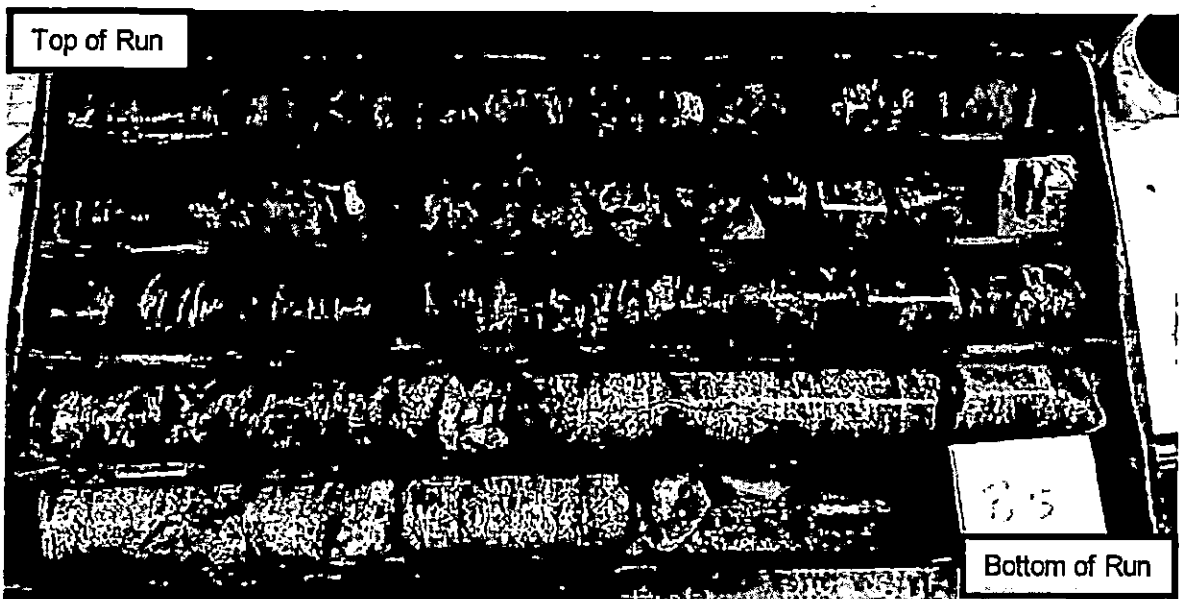 Top of Run
Bottom of Run